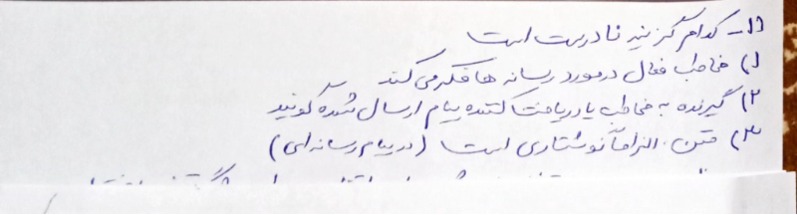 ۱۱- کدام گزینه نادرست است
۱) مخاطب فعال در مورد رسانه ها فکر می کند
۲) گیرنده به مخاطب یا دریافت کننده پیام ارسال شده گویند
۳) متن الزاماً نوشتاری است (در پیام رسانه ای)